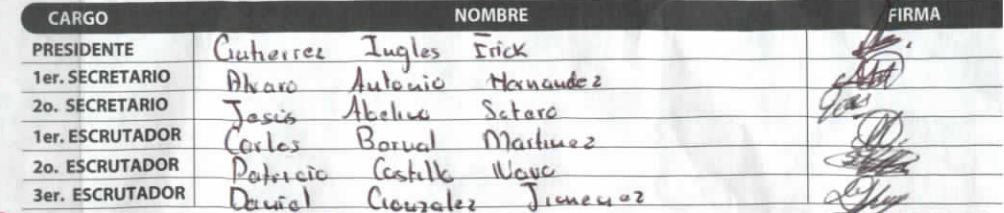 CARGO NOMBRE FIRMA
PRESIDENTE Gutierrez Ingles Erick
1er. SECRETARIO Alvaro Antonio Hernandez
2o. SECRETARIO Jesús Abelino Sotero
1er. ESCRUTADOR Carlos Martinez
2o. ESCRUTADOR Patricio Castillo
3er. ESCRUTADOR Daniel Gonzalez Jimenez